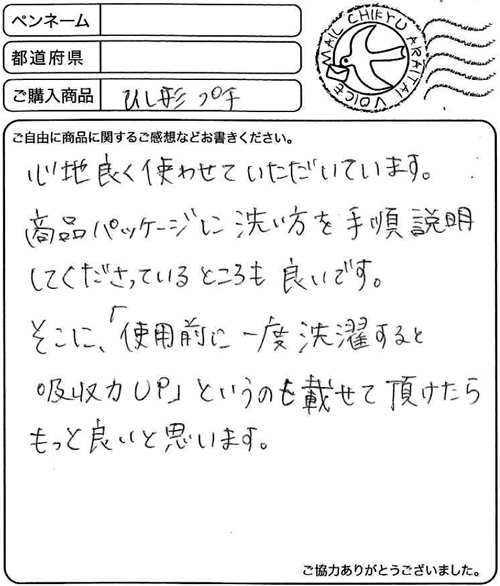 ペンネーム
都道府県
ご購入商品 ひし形 プチ
MAIL CHIKYU ARAITAI VOICE
ご自由に商品に関するご感想などお書きください。
心地良く使わせていただいています。
商品パッケージに洗い方を手順説明
してくださっているところも良いです。
そこに、「使用前に一度洗濯すると
吸収力UP」というのも載せて頂けたら
もっと良いと思います。
ご協力ありがとうございました。